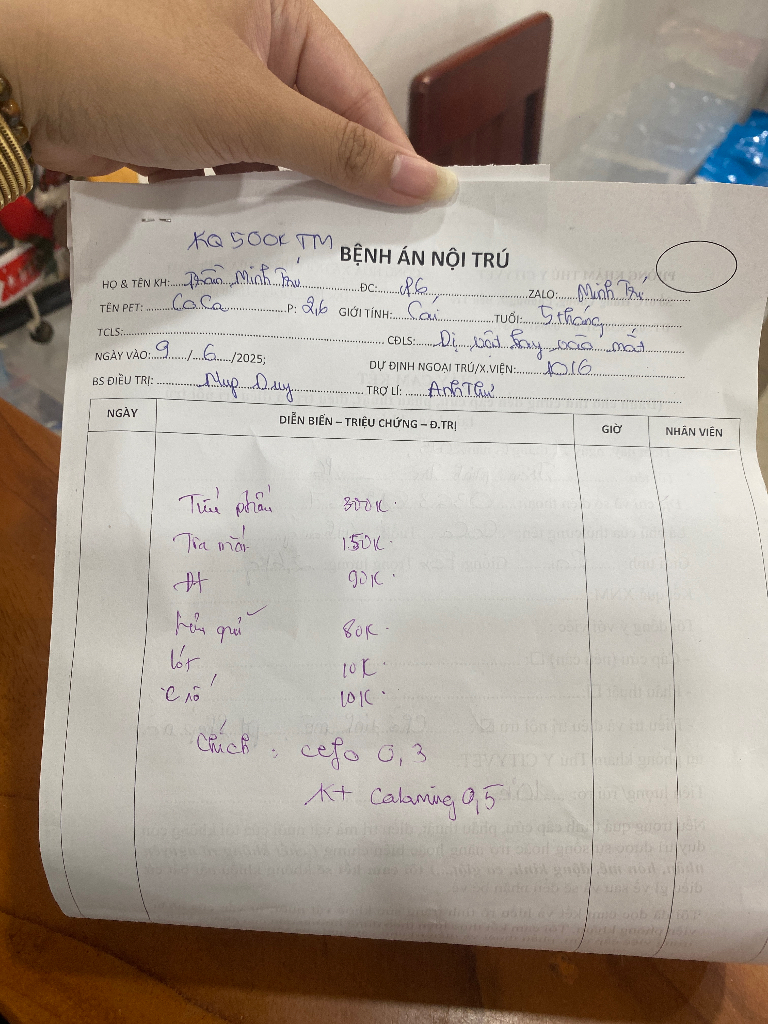 KQ 500K TM
BỆNH ÁN NỘI TRÚ
HỌ & TÊN KH: Trần Minh Trí ĐC: 86 ZALO: Minh Trí
TÊN PET: CaCa P: 2,6 GIỚI TÍNH: Cái TUỔI: 5 tháng
TCLS: CĐLS: Dị vật bay vào mắt
NGÀY VÀO: 9 / 6 /2025; DỰ ĐỊNH NGOẠI TRÚ/X.VIỆN: 10/6
BS ĐIỀU TRỊ: Duy TRỢ LÍ: Anh Thư
NGÀY DIỄN BIẾN – TRIỆU CHỨNG – Đ.TRỊ GIỜ NHÂN VIÊN
Tiểu phẫu 300K
Tra mắt 150K
90K
80K
lót 10K
10K
Chích : cefo 0,3
K+ Calaming 0,5